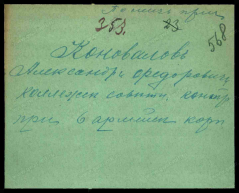 353. 23 568
Коноваловъ
Александръ Федоровичъ
коллежск. совѣтн. контр
при 6 армейск корп